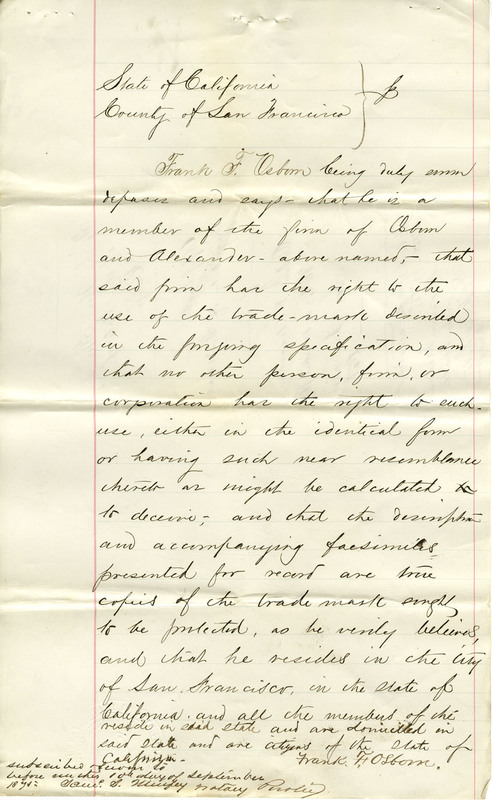 State of California
County of San Francisco } ss
Frank F. Osborn being duly sworn
deposes and says - that he is a
member of the firm of Osborn
and Alexander - above named, - that
said firm has the right to the
use of the trade-mark described
in the forgoing specification, and
that no other person, firm, or
corporation has the right to such
use, either in the identical form
or having such near resemblance
thereto as might be calculated to
to deceive; and that the description
and accompanying facsimiles
presented for record are true
copies of the trade mark sought
to be protected, as he verily believes,
and that he resides in the City
of San Francisco, in the state of
California. and all the members of the
reside in said state and are domiciled in
said state and are citizens of the State of
California. Frank F. Osborn.
subscribed sworn to
before me this 10th day of September
187 Notary Public